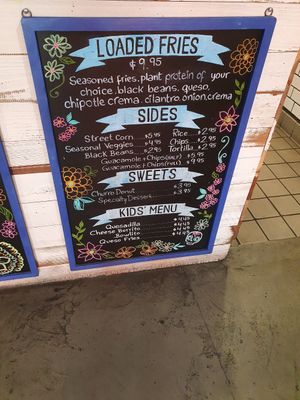 LOADED FRIES
$9.95
Seasoned fries, plant protein of your
choice, black beans, queso,
chipotle crema, cilantro, onion, crema
SIDES
Street Corn $5.95 Rice $2.95
Seasonal Veggies $4.95 Chips $2.95
Black Beans $2.95 Tortilla $2.95
Guacamole + Chips $5.95
Guacamole + Chips $9.95
SWEETS
Churro Donut $3.95
Specialty Dessert $3.95
KIDS' MENU
Quesadilla $4.95
Cheese Burrito $4.95
Bowlito $4.95
Queso Fries $4.95